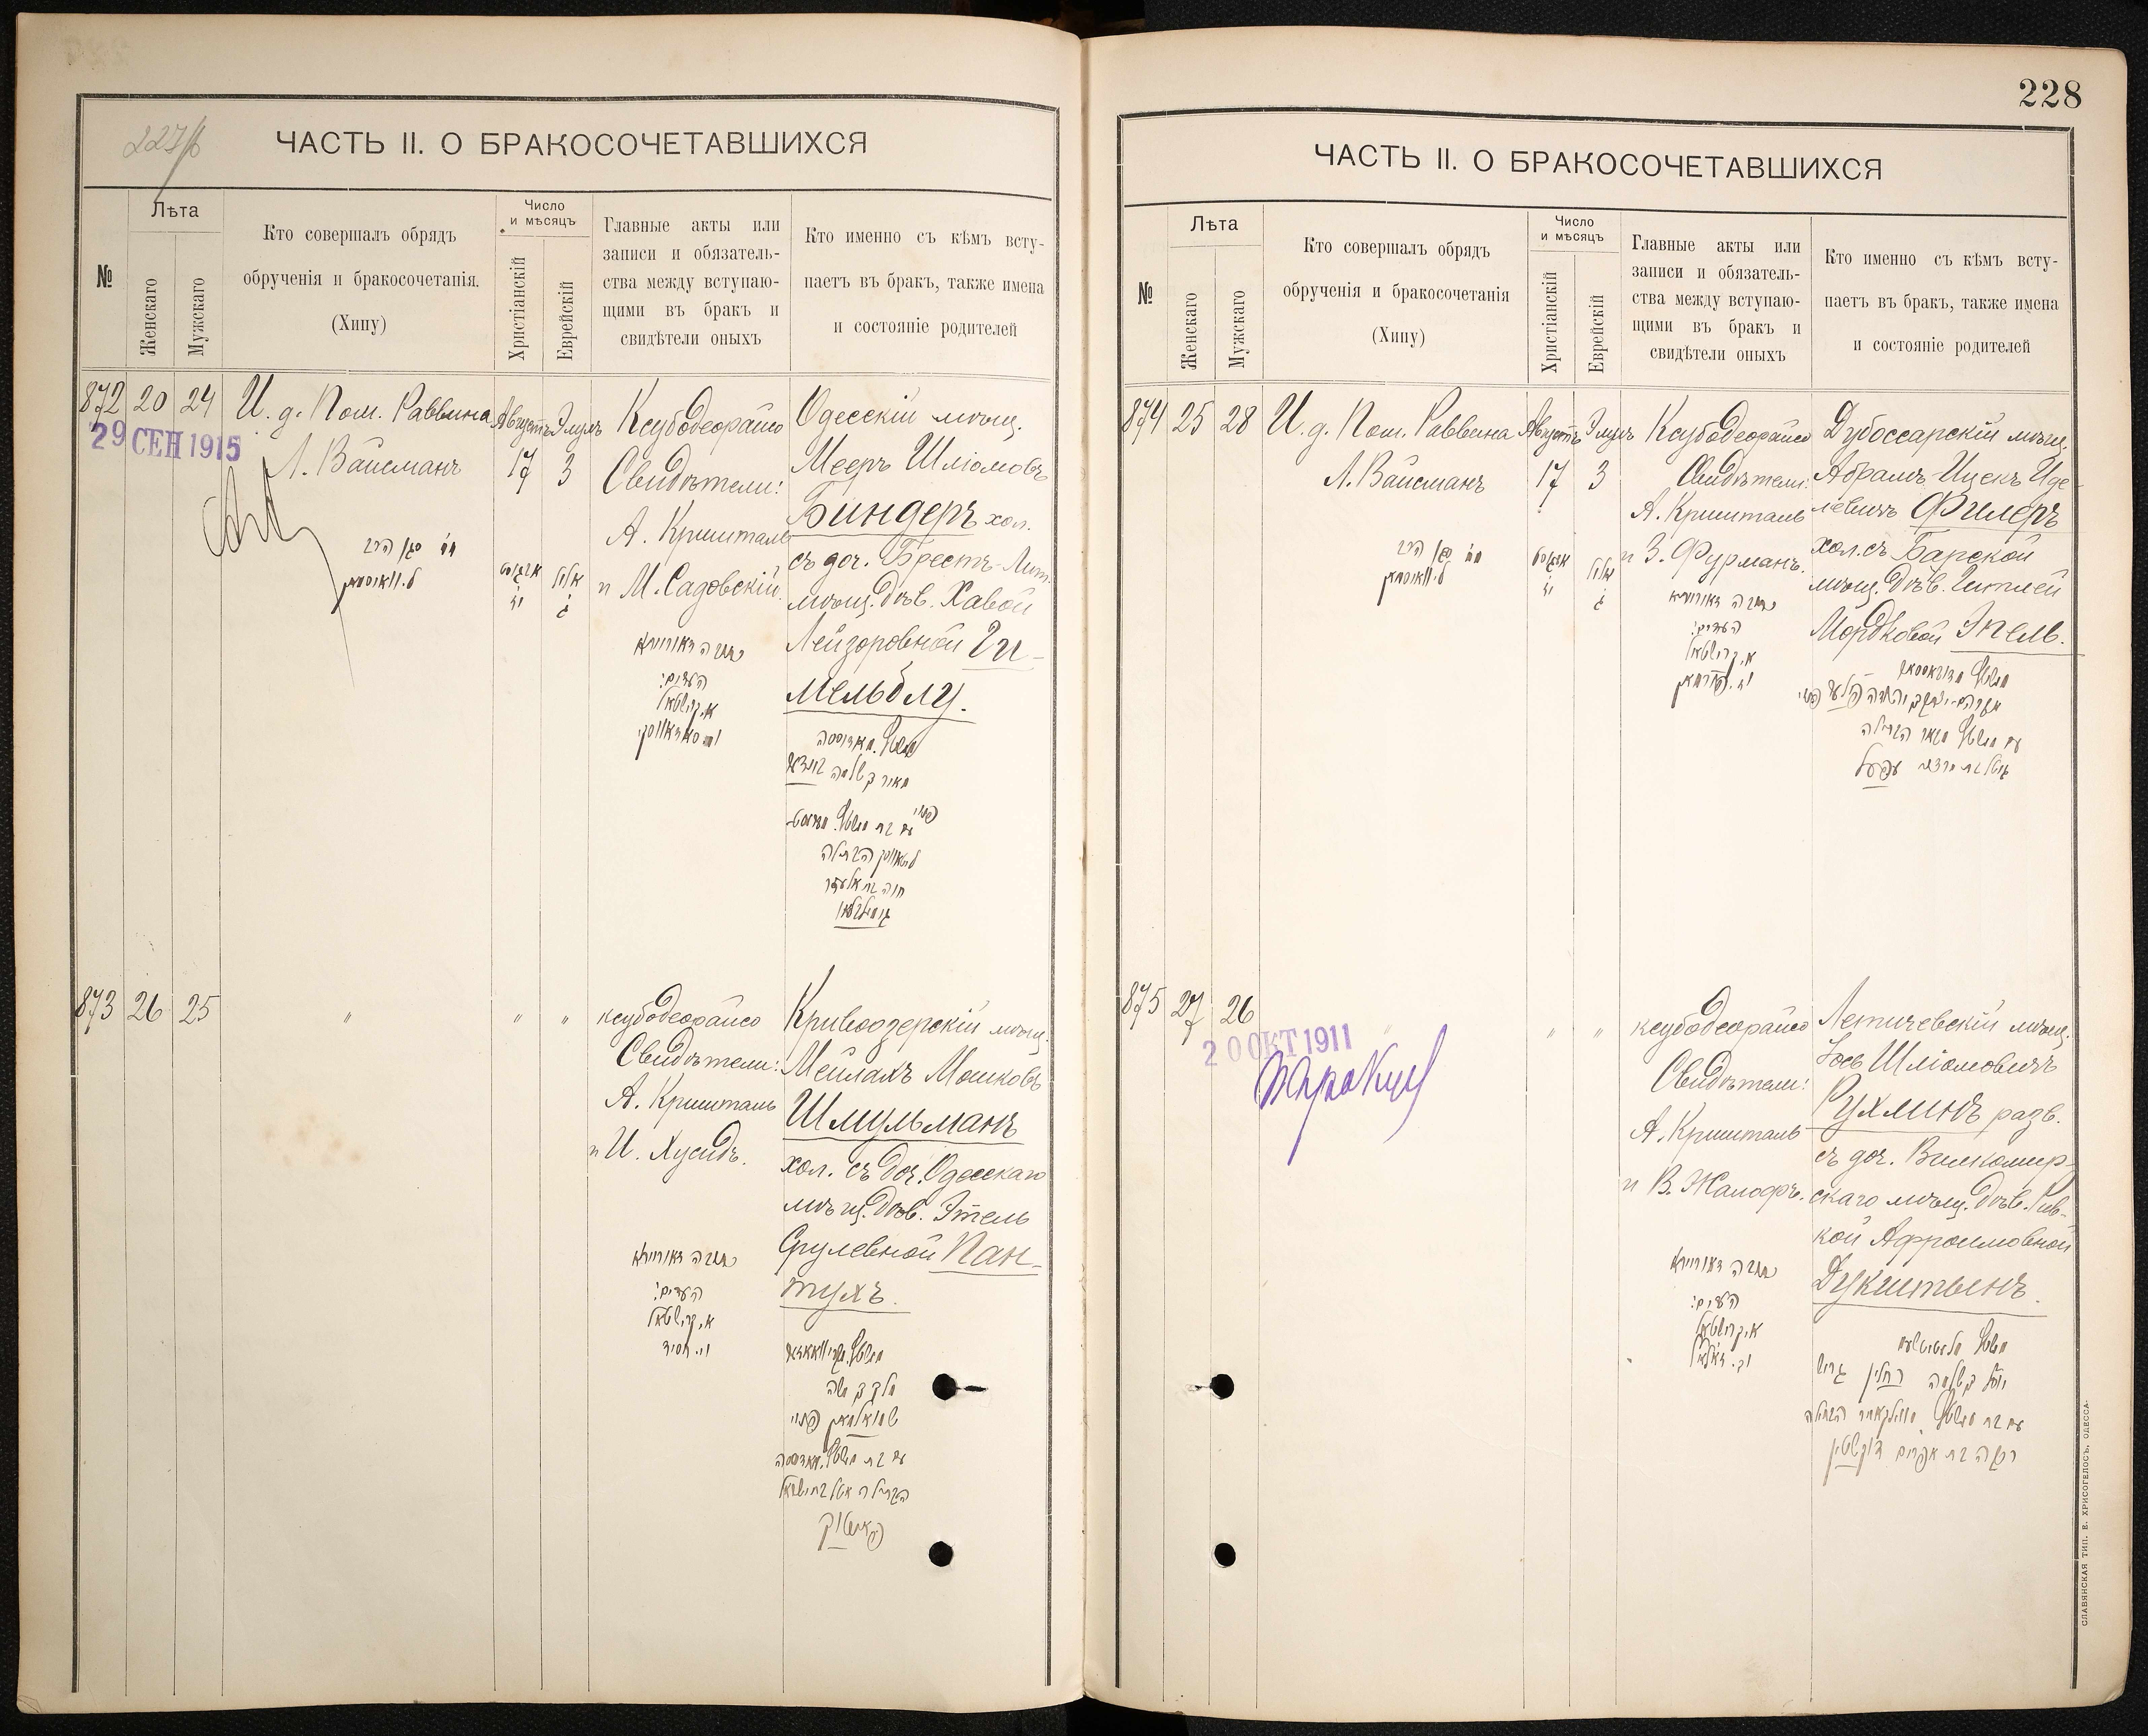 227/б
ЧАСТЬ II. О БРАКОСОЧЕТАВШИХСЯ
№
Лѣта
Женскаго
Мужскаго
Кто совершалъ обрядъ
обрученія и бракосочетанія.
(Хипу)
Число
и мѣсяцъ
Христіанскій
Еврейскій
Главные акты или
записи и обязатель-
ства между вступаю-
щими въ бракъ и
свидѣтели оныхъ
Кто именно съ кѣмъ всту-
паетъ въ бракъ, также имена
и состояніе родителей
872 20 24
29 СЕН 1915
И. д. Пом. Раввина
Л. Вайсманъ
Августъ
17
Элулъ
3
אויגוסט
יז
אלול
ג
Ксубодеорайсо
Свидѣтели:
А. Кришталь
и М. Садовскій.
העדים:
א. קרישטאל
Одесскій мѣщ.
Мееръ Шліомовъ
Биндеръ хол.
съ доч. Брестъ-Лит.
мѣщ. дѣв. Хавой
Лейзоровной Ги-
мельблу.
מאיר בן שלמה בינדער
חוה בת אלעזר
873 26 25
"
" "
ксубодеорайсо
Свидѣтели:
А. Кришталь
и И. Хусидъ.
העדים:
א. קרישטאל
וי. חסיד
Кривоозерскій мѣщ.
Мейлахъ Мошковъ
Шмульманъ
хол. съ доч. Одесскаго
мѣщ. дѣв. Этель
Срулевной Пан-
тухъ.
מלך בן משה
שמואלמאן פנוי
הבתולה אטל בת ישראל
228
ЧАСТЬ II. О БРАКОСОЧЕТАВШИХСЯ
№
Лѣта
Женскаго
Мужскаго
Кто совершалъ обрядъ
обрученія и бракосочетанія
(Хипу)
Число
и мѣсяцъ
Христіанскій
Еврейскій
Главные акты или
записи и обязатель-
ства между вступаю-
щими въ бракъ и
свидѣтели оныхъ
Кто именно съ кѣмъ всту-
паетъ въ бракъ, также имена
и состояніе родителей
874 25 28
И. д. Пом. Раввина
Л. Вайсманъ
Августъ
17
Элулъ
3
אויגוסט
יז
אלול
ג
Ксубодеорайсо
Свидѣтели:
А. Кришталь
и З. Фурманъ.
העדים:
א. קרישטאל
וז. פורמאן
Дубоссарскій мѣщ.
Абрамъ-Ицекъ Иде
левичъ Филеръ
хол. съ Барской
мѣщ. дѣв. Гитлей
Мордковой Эпель.
875 27 26
20 ОКТ 1911
" "
ксубодеорайсо
Свидѣтели:
А. Кришталь
и В. Жалофъ.
העדים:
א. קרישטאל
Летичевскій мѣщ.
Іось Шліомовичъ
Рухлинъ разв.
съ доч. Вилкомир-
скаго мѣщ. дѣв. Рив-
кой Афроимовной
Дукштынъ.
רבקה בת אפרים דוקשטין
СЛАВЯНСКАЯ ТИП. Е. ХРИСОГЕЛОСЪ, ОДЕССА.